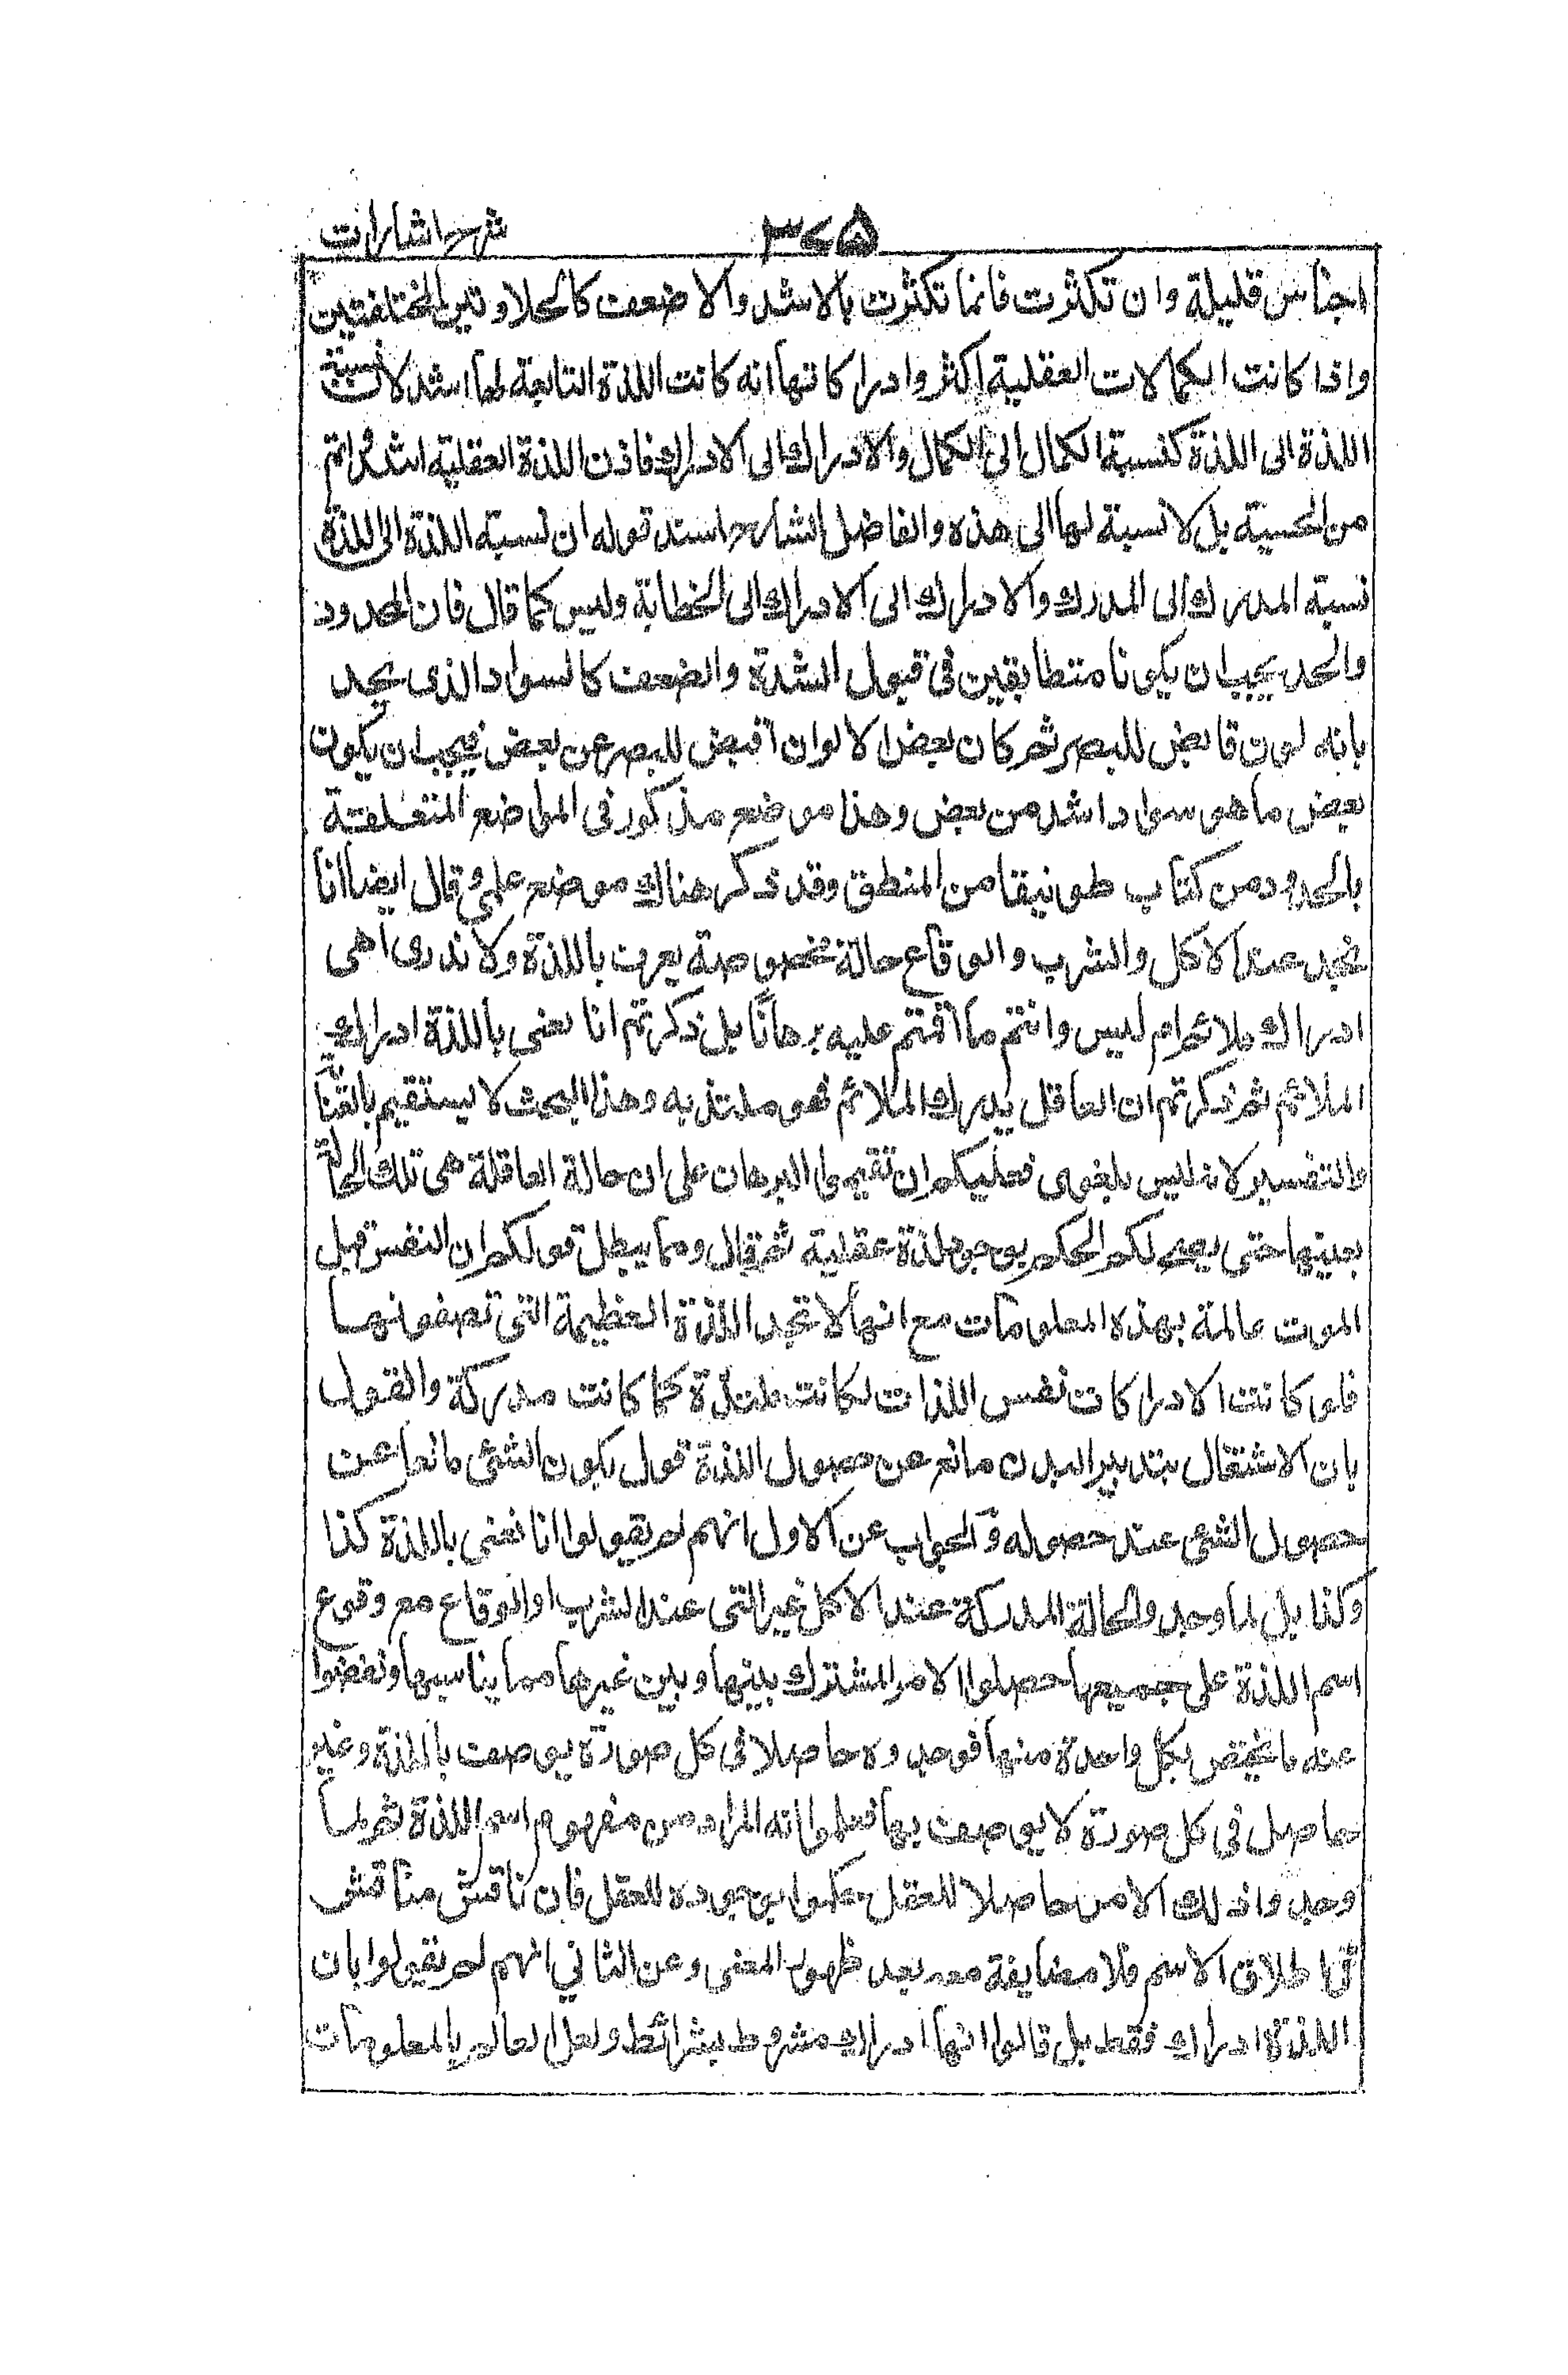 شرح اشارات
٣٧٥
اجناس قليلة وان تكثرت فانما تكثرت بالاشد والاضعف كالحلاوتين المختلفتين
واذا كانت الكمالات العقلية اكثر وادراكاتها اتم كانت اللذة التابعة لها اشد لان نسبة
اللذة الى اللذة كنسبة الكمال الى الكمال والادراك الى الادراك فاذن اللذة العقلية اشد واتم
من الحسية بل لا نسبة لها الى هذه والفاضل الشارح اسند قوله ان نسبة اللذة الى اللذة
نسبة المدرك الى المدرك والادراك الى الادراك الى الخطابة وليس كما قال فان المحدود
والحد يجب ان يكونا متطابقين فى قبول الشدة والضعف كالسواد الذى يحد
بانه لون قابض للبصر ثم كان بعض الالوان اقبض للبصر عن بعض فيجب ان يكون
بعض ما هو سواد اشد من بعض وهذا موضع مذكور فى المواضع المتعلقة
بالحدود من كتاب طونيقا من المنطق وقد ذكر هناك موضع علمى وقال ايضا انا
نجد عند الاكل والشرب والوقاع حالة مخصوصة يعرف باللذة ولا ندرى اهى
ادراك ملائم ام ليس وانتم ما اقمتم عليه برهانًا بل ذكرتم انا نعنى باللذة ادراك
الملائم ثم ذكرتم ان العاقل يدرك الملائم فهو ملتذ به وهذا البحث لا يستقيم بالعناية
والتفسير لانه ليس بلغوى فعليكم ان تقيموا البرهان على ان حالة العاقلة هى تلك الحالة
بعينها حتى يصح لكم الحكم بوجود لذة عقلية ثم قال ومما يبطل قولكم ان النفس قبل
الموت عالمة بهذه المعلومات مع انها لا تجد اللذة العظيمة التى تصفونها
فلو كانت الادراكات نفس اللذات لكانت ملتذة كما كانت مدركة والقول
بان الاشتغال بتدبير البدن مانع عن حصول اللذة قول بكون الشئ مانعا عن
حصول الشئ عند حصوله والجواب عن الاول انهم لم يقولوا انا نعنى باللذة كذا
وكذا بل لما وجدوا الحالة المدركة عند الاكل غير التى عند الشرب او الوقاع مع وقوع
اسم اللذة على جميعها حصلوا الامر المشترك بينها وبين غيرها مما يناسبها ونفضوا
عنه ما يختص بكل واحدة منها فوجدوه حاصلا فى كل صورة يوصف باللذة وغير
حاصل فى كل صورة لا يوصف بها فعلموا انه المراد من مفهوم اسم اللذة ثم لما
وجدوا ذلك الامر حاصلا للعقل حكموا بوجوده للعقل فان ناقش مناقش
فى اطلاق الاسم فلا مضايقة معه بعد ظهور المعنى وعن الثانى انهم لم يقولوا بان
اللذة ادراك فقط بل قالوا انها ادراك مشروط بشرائط ولعل العالم بالمعلومات